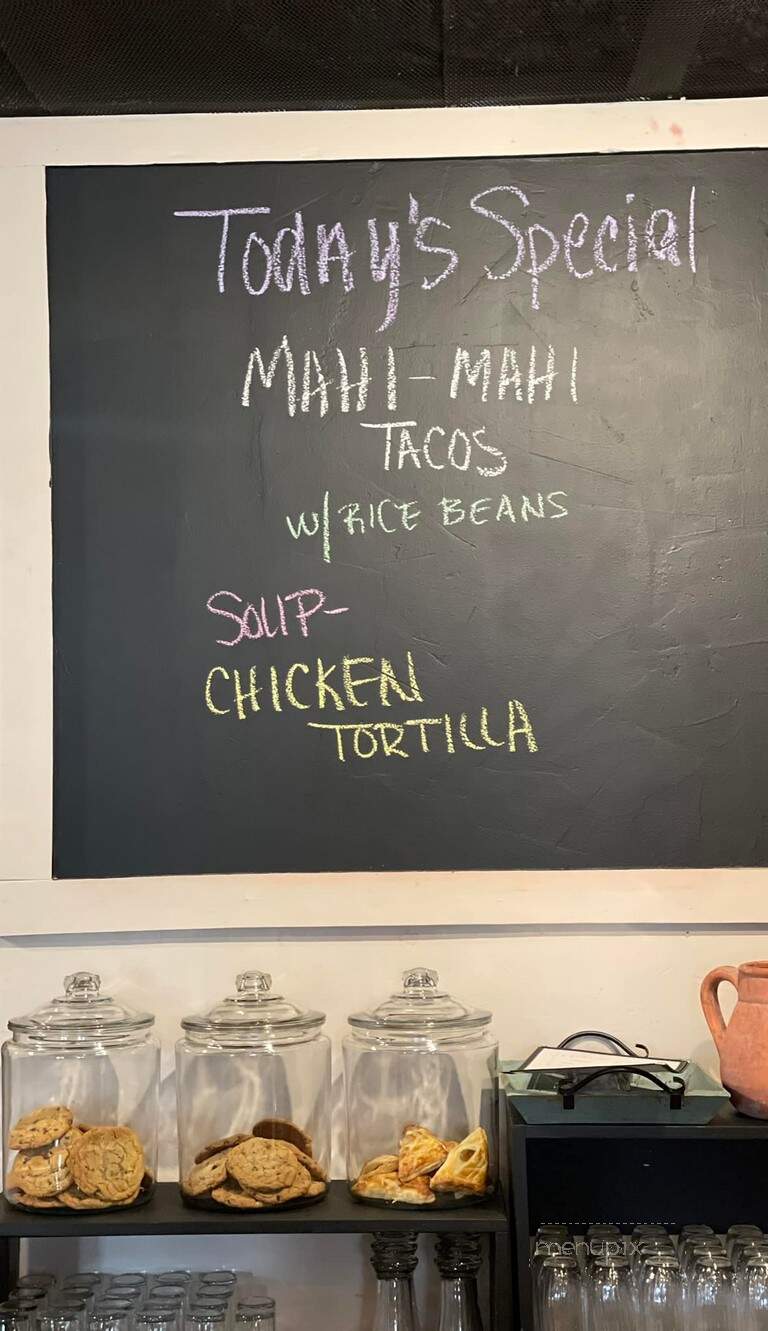 Today's Special
MAHI-MAHI
TACOS
W/ RICE BEANS
SOUP-
CHICKEN
TORTILLA
menupix